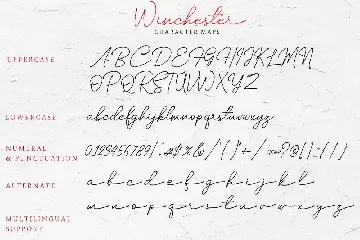 Winchester
CHARACTER MAPS
UPPERCASE
ABCDEFGHIJKLMN
OPQRSTUVWXYZ
LOWERCASE
abcdefghijklmnopqrstuvwxyz
NUMERAL
& PUNCTUATION
0123456789
ALTERNATE
a b c d e f g h i j k l
m n o p q r s t u v w x y z
MULTILINGUAL
SUPPORT